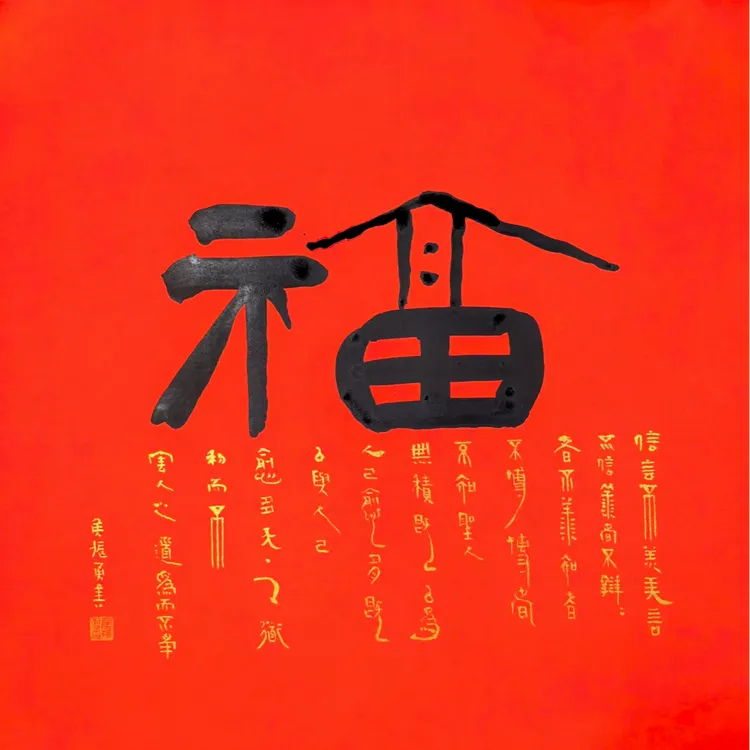 福
信言不美美言
不信善者不辯〻
者不善知者
不博博者
不知聖人
無積既以為
人己愈多既
以與人己
愈多天之道
利而不
害人之道為而不爭